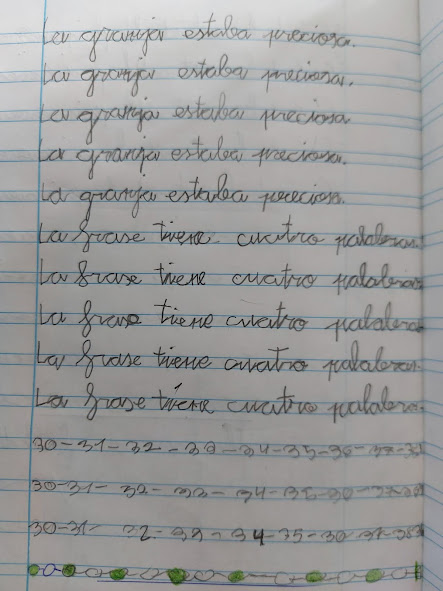 La granja estaba preciosa.
La granja estaba preciosa.
La granja estaba preciosa
La granja estaba preciosa.
La granja estaba preciosa.
La frase tiene cuatro palabras.
La frase tiene cuatro palabras
La frase tiene cuatro palabras
La frase tiene cuatro palabras.
La frase tiene cuatro palabras.
30-31-32-33-34-35-36-37-38
30-31-32-33-34-35-36-37-38
30-31-32-33-34-35-36-37-38